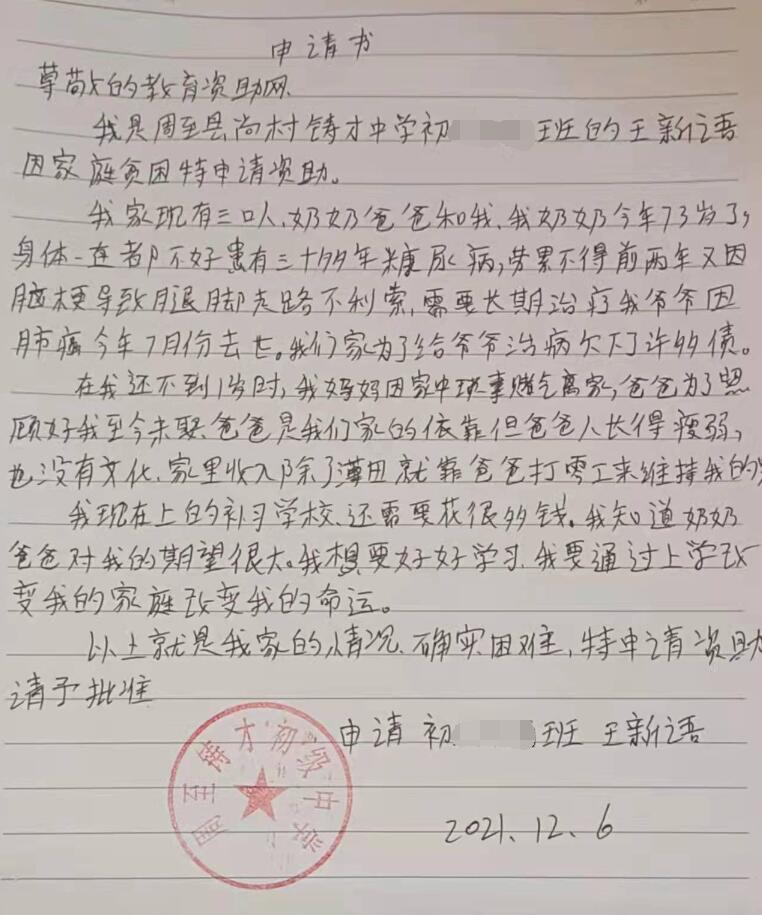 申请书
尊敬的教育资助网
我是周至县尚村铸才中学初 班的王新语
因家庭贫困特申请资助。
我家现有三口人,奶奶爸爸和我,我奶奶今年73岁了,
身体一在都不好患有三十多年糖尿病,劳累不得前两年又因
脑梗导致腿脚走路不利索,需要长期治疗我爷爷因
肺癌今年7月份去世。我们家为了给爷爷治病欠下了许多债。
在我还不到1岁时,我妈妈因家中琐事赌气离家,爸爸为了照
顾好我至今未娶.爸爸是我们家的依靠但爸爸人长得瘦弱,
也没有文化.家里收入除了薄田就靠爸爸打零工来维持我的
我现在上的补习学校.还需要花很多钱。我知道奶奶
爸爸对我的期望很大。我想要好好学习.我要通过上学改
变我的家庭改变我的命运。
以上就是我家的情况.确实困难,特申请资助
请予批准
申请 初 班 王新语
2021.12.6
周至铸才初级中学